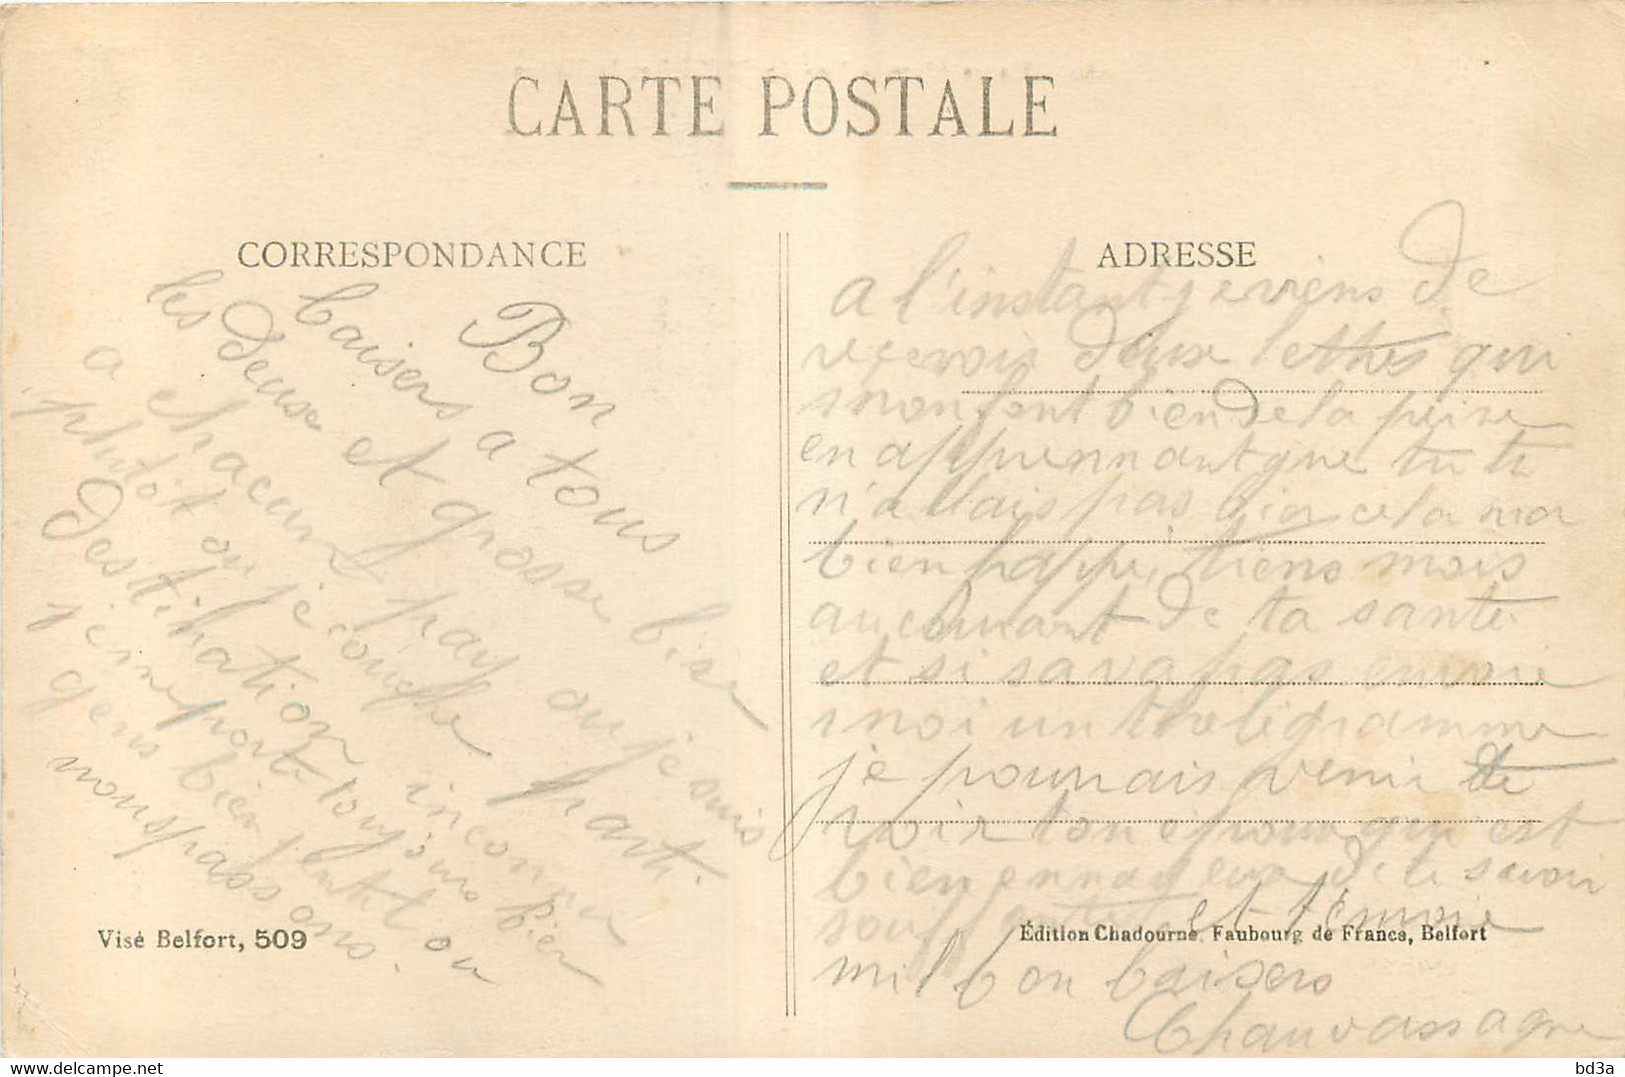 CARTE POSTALE
CORRESPONDANCE
Bon
baisers a tous
les deux et grosse bise
a chacun pay ou je suis
plutôt ou je couche part.
Destination inconnu
j'emporte toujours bien
gens bien plutot ou
nous passons.
Visé Belfort, 509
ADRESSE
a l'instant je viens de
reçevoir deux lettres qui
mon font bien de la peine
en apprennant que tu te
n'allais pas bien cela ma
bien happé, tiens mois
au courant de ta santé
et si sava pas envoie
moi un théligramme
je pourrais venir te
voir ton épouxqui est
bien ennayeux de te savoir
souffrante et t'envoie
Édition Chadourne, Faubourg de France, Belfort
mil bon baisers
Chauvassagne
bd3a